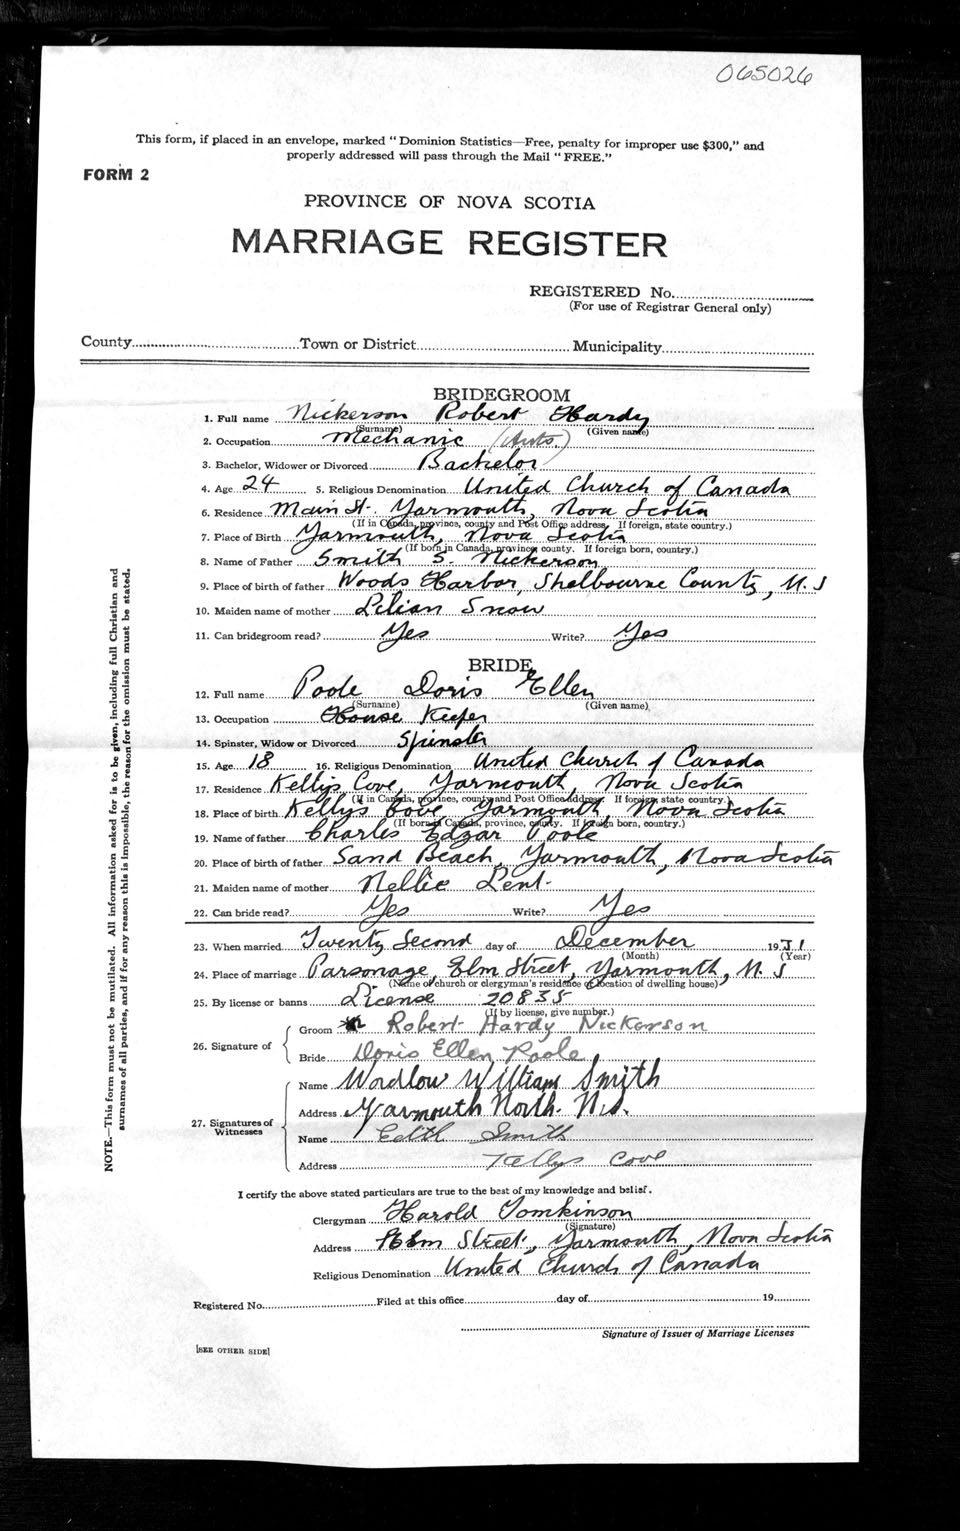 065026
This form, if placed in an envelope, marked "Dominion Statistics—Free, penalty for improper use $300," and
properly addressed will pass through the Mail "FREE."
FORM 2
PROVINCE OF NOVA SCOTIA
MARRIAGE REGISTER
REGISTERED No.
(For use of Registrar General only)
County Town or District Municipality
BRIDEGROOM
1. Full name Nickerson Robert Hardy
(Surname) (Given name)
2. Occupation Mechanic (Auto.)
3. Bachelor, Widower or Divorced Bachelor
4. Age 24 5. Religious Denomination United Church of Canada
6. Residence Main St. Yarmouth, Nova Scotia
(If in Canada, province, county and Post Office address. If foreign, state country.)
7. Place of Birth Yarmouth, Nova Scotia
(If born in Canada, province, county. If foreign born, country.)
8. Name of Father Smith S. Nickerson
9. Place of birth of father Woods Harbor, Shelbourne County, N. S
10. Maiden name of mother Lilian Snow
11. Can bridegroom read? Yes Write? Yes
BRIDE
12. Full name Poole Doris Ellen
(Surname) (Given name)
13. Occupation House Keeper
14. Spinster, Widow or Divorced Spinster
15. Age 18 16. Religious Denomination United Church of Canada
17. Residence Kellys Cove, Yarmouth, Nova Scotia
(If in Canada, province, county and Post Office address. If foreign, state country.)
18. Place of birth Kellys Cove, Yarmouth, Nova Scotia
(If born in Canada, province, county. If foreign born, country.)
19. Name of father Charles Edgar Poole
20. Place of birth of father Sand Beach, Yarmouth, Nova Scotia
21. Maiden name of mother Nellie Lent
22. Can bride read? Yes Write? Yes
23. When married Twenty Second day of December 1931
(Month) (Year)
24. Place of marriage Parsonage, Elm Street, Yarmouth, N. S
(Name of church or clergyman's residence or location of dwelling house)
25. By license or banns License 20835
(If by license, give number.)
26. Signature of
Groom Robert Hardy Nickerson
Bride Doris Ellen Poole
27. Signatures of Witnesses
Name William Smith
Address Yarmouth North. N.S.
Name Edith Smith
Address Kellys Cove
I certify the above stated particulars are true to the best of my knowledge and belief.
Clergyman Harold Tomkinson
(Signature)
Address Elm Street, Yarmouth, Nova Scotia
Religious Denomination United Church of Canada
Registered No. Filed at this office day of 19
Signature of Issuer of Marriage Licenses
[SEE OTHER SIDE]
NOTE.—This form must not be mutilated. All information asked for is to be given, including full Christian and
surnames of all parties, and if for any reason this is impossible, the reason for the omission must be stated.